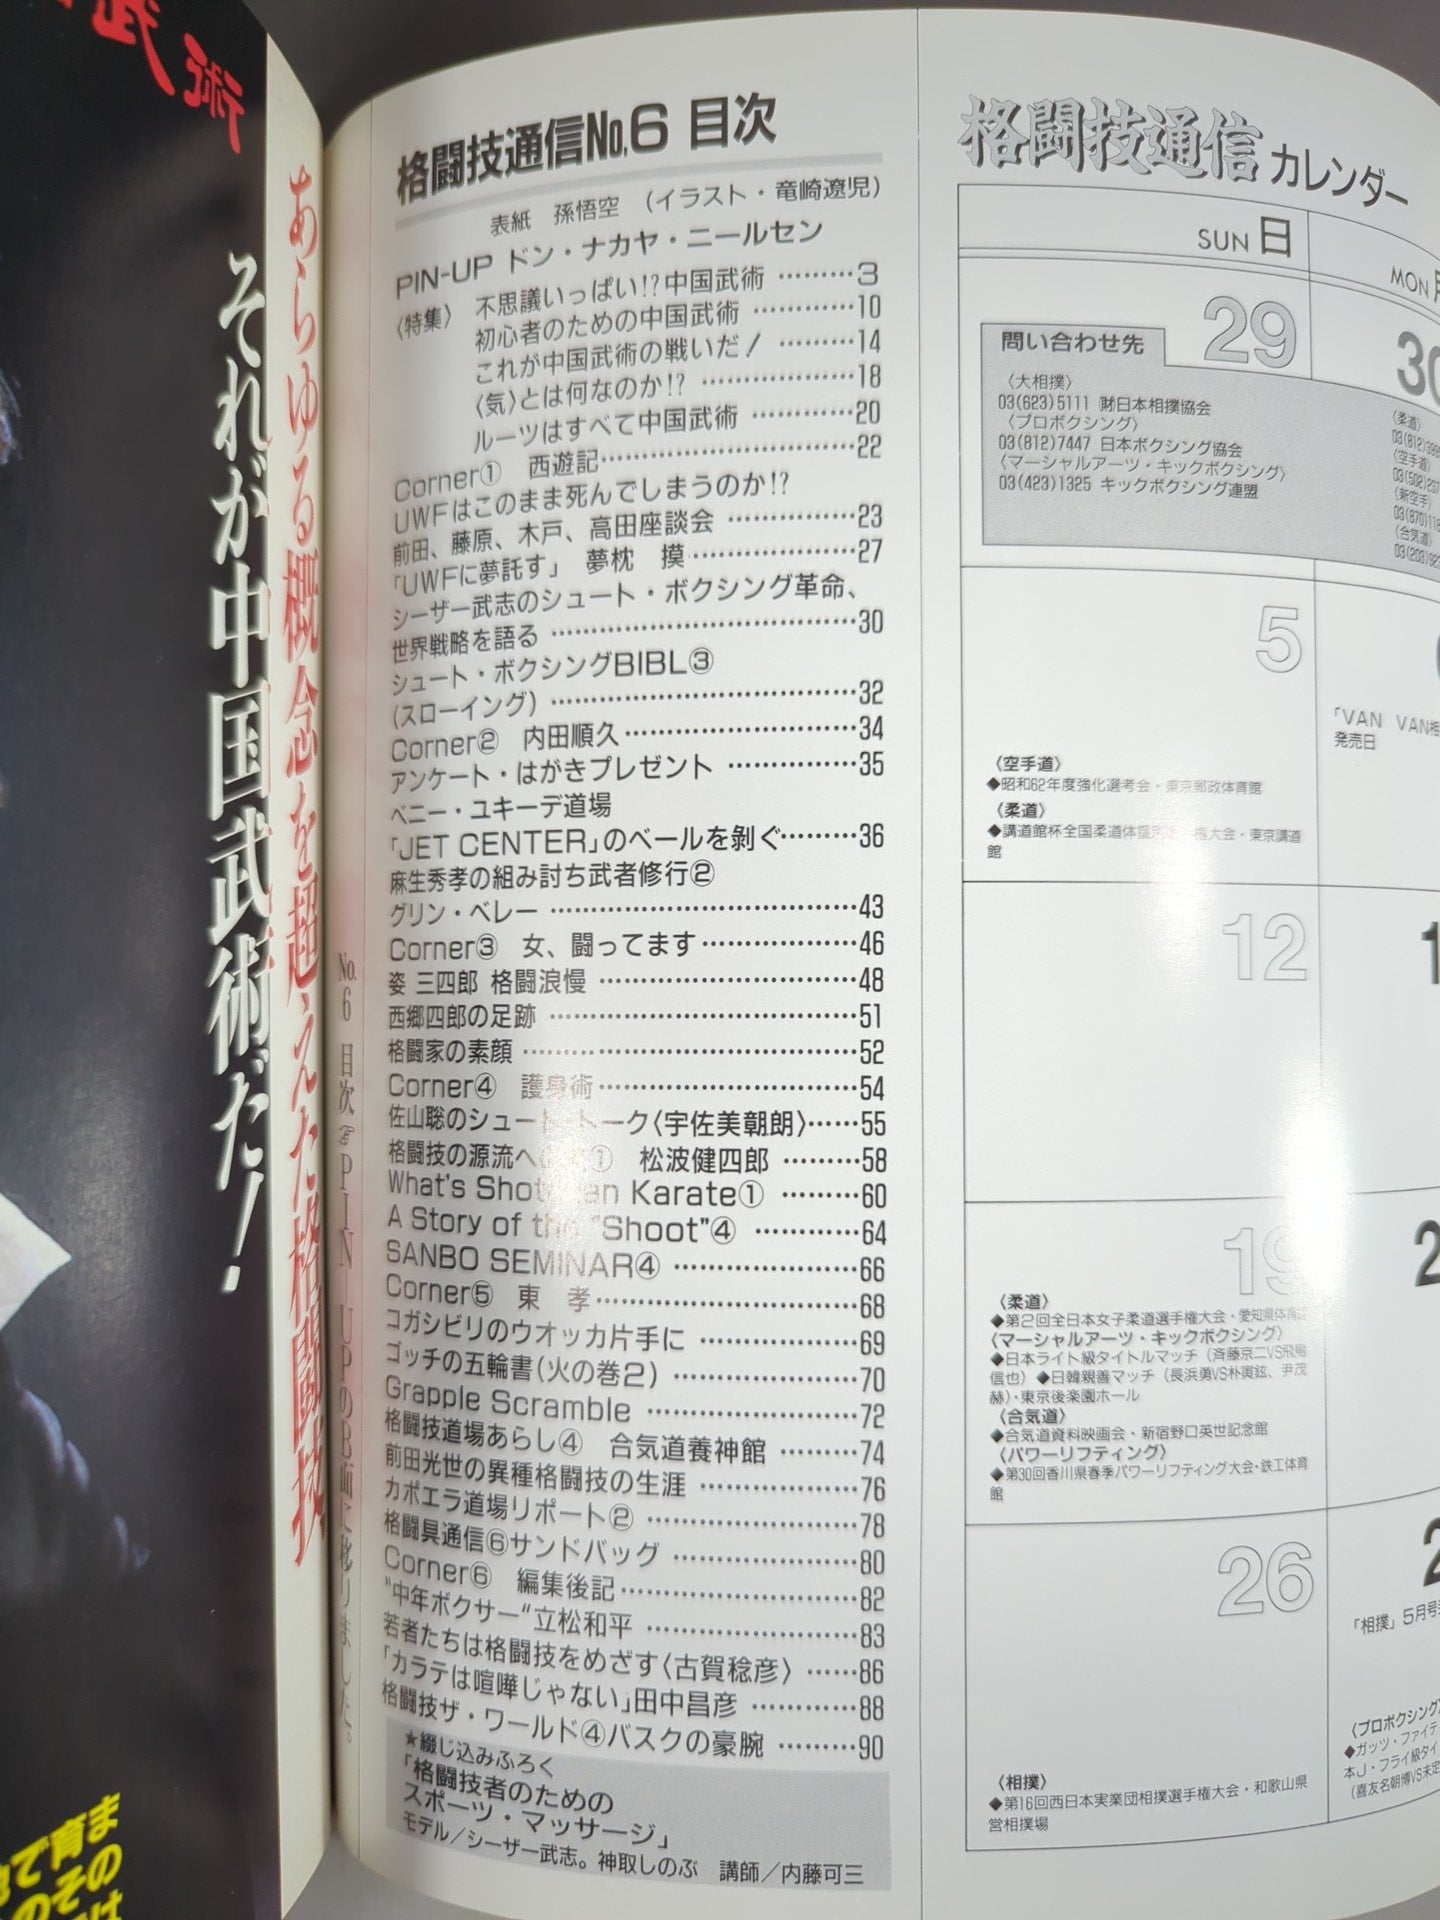 武術
あらゆる概念を超えた格闘技
それが中国武術だ！
で育ま
のその
No.6 目次 PIN-UPのB面に移りました。
格闘技通信No.6 目次
表紙 孫悟空 （イラスト・竜崎遼児）
PIN-UP ドン・ナカヤ・ニールセン
〈特集〉 不思議いっぱい!?中国武術 ………3
初心者のための中国武術 …………10
これが中国武術の戦いだ！ ………14
〈気〉とは何なのか!? ………………18
ルーツはすべて中国武術 …………20
Corner① 西遊記……………………22
UWFはこのまま死んでしまうのか!?
前田、藤原、木戸、高田座談会 …………23
「UWFに夢託す」 夢枕 摸……………27
シーザー武志のシュート・ボクシング革命、
世界戦略を語る …………………………30
シュート・ボクシングBIBL③
(スローイング) …………………………32
Corner② 内田順久……………………34
アンケート・はがきプレゼント …………35
ベニー・ユキーデ道場
「JET CENTER」のベールを剝ぐ………36
麻生秀孝の組み討ち武者修行②
グリン・ベレー …………………………43
Corner③ 女、闘ってます……………46
姿 三四郎 格闘浪慢 ……………………48
西郷四郎の足跡 …………………………51
格闘家の素顔 ……………………………52
Corner④ 護身術………………………54
佐山聡のシュート・トーク〈宇佐美朝朗〉……55
格闘技の源流へ ① 松波健四郎 ………58
What's Shotokan Karate① ………60
A Story of the "Shoot"④ …………64
SANBO SEMINAR④ ………………66
Corner⑤ 東 孝………………………68
コガシビリのウオッカ片手に ……………69
ゴッチの五輪書(火の巻2) ………………70
Grapple Scramble …………………72
格闘技道場あらし④ 合気道養神館 ………74
前田光世の異種格闘技の生涯 ……………76
カポエラ道場リポート② …………………78
格闘具通信⑥サンドバッグ ………………80
Corner⑥ 編集後記……………………82
"中年ボクサー"立松和平 …………………83
若者たちは格闘技をめざす〈古賀稔彦〉……86
「カラテは喧嘩じゃない」田中昌彦 …………88
格闘技ザ・ワールド④バスクの豪腕 ………90
★綴じ込みふろく
「格闘技者のための
スポーツ・マッサージ」
モデル／シーザー武志。神取しのぶ 講師／内藤可三
格闘技通信 カレンダー
SUN 日
MON
29
30
問い合わせ先
〈大相撲〉
03(623)5111 ㈶日本相撲協会
〈プロボクシング〉
03(812)7447 日本ボクシング協会
〈マーシャルアーツ・キックボクシング〉
03(423)1325 キックボクシング連盟
〈柔道〉
〈空手道〉
〈新空手〉
〈合気道〉
5
〈空手道〉
◆昭和62年度強化選考会・東京郵政体育館
〈柔道〉
◆講道館杯全国柔道体重別選手権大会・東京講道
館
「VAN VAN相
発売日
12
19
〈柔道〉
◆第2回全日本女子柔道選手権大会・愛知県体育館
〈マーシャルアーツ・キックボクシング〉
◆日本ライト級タイトルマッチ（斉藤京二VS飛鳥
信也）◆日韓親善マッチ（長浜勇VS朴寅鉉、尹茂
赫）・東京後楽園ホール
〈合気道〉
◆合気道資料映画会・新宿野口英世記念館
〈パワーリフティング〉
◆第30回香川県春季パワーリフティング大会・鉄工体育
館
26
〈相撲〉
◆第16回西日本実業団相撲選手権大会・和歌山県
営相撲場
「相撲」5月号
〈プロボクシング〉
◆ガッツ・ファイテ
本J・フライ級タイ
（喜友名朝博VS未定